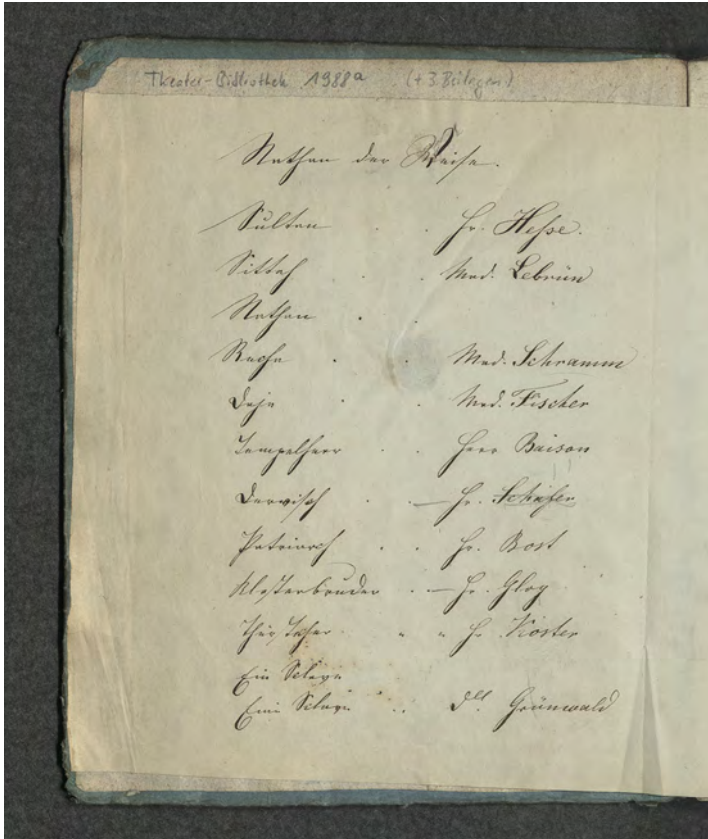 Theater-Bibliothek 1988a (+ 3 Beilagen)
Nathan der Weise.
Sultan . . Hr. Hesse.
Sittah . . Mad. Lebrün
Nathan . .
Recha . . Mad. Schramm
Daja . . Mad. Fischer
Tempelherr . . Herr Baison
Derwisch . . — Hr. Schäfer
Patriarch . . Hr. Bost
Klosterbruder . — Hr. Gloy
Hr. Koster
Ein Sclave
Eine Sclavin . . Dll. Grünwald